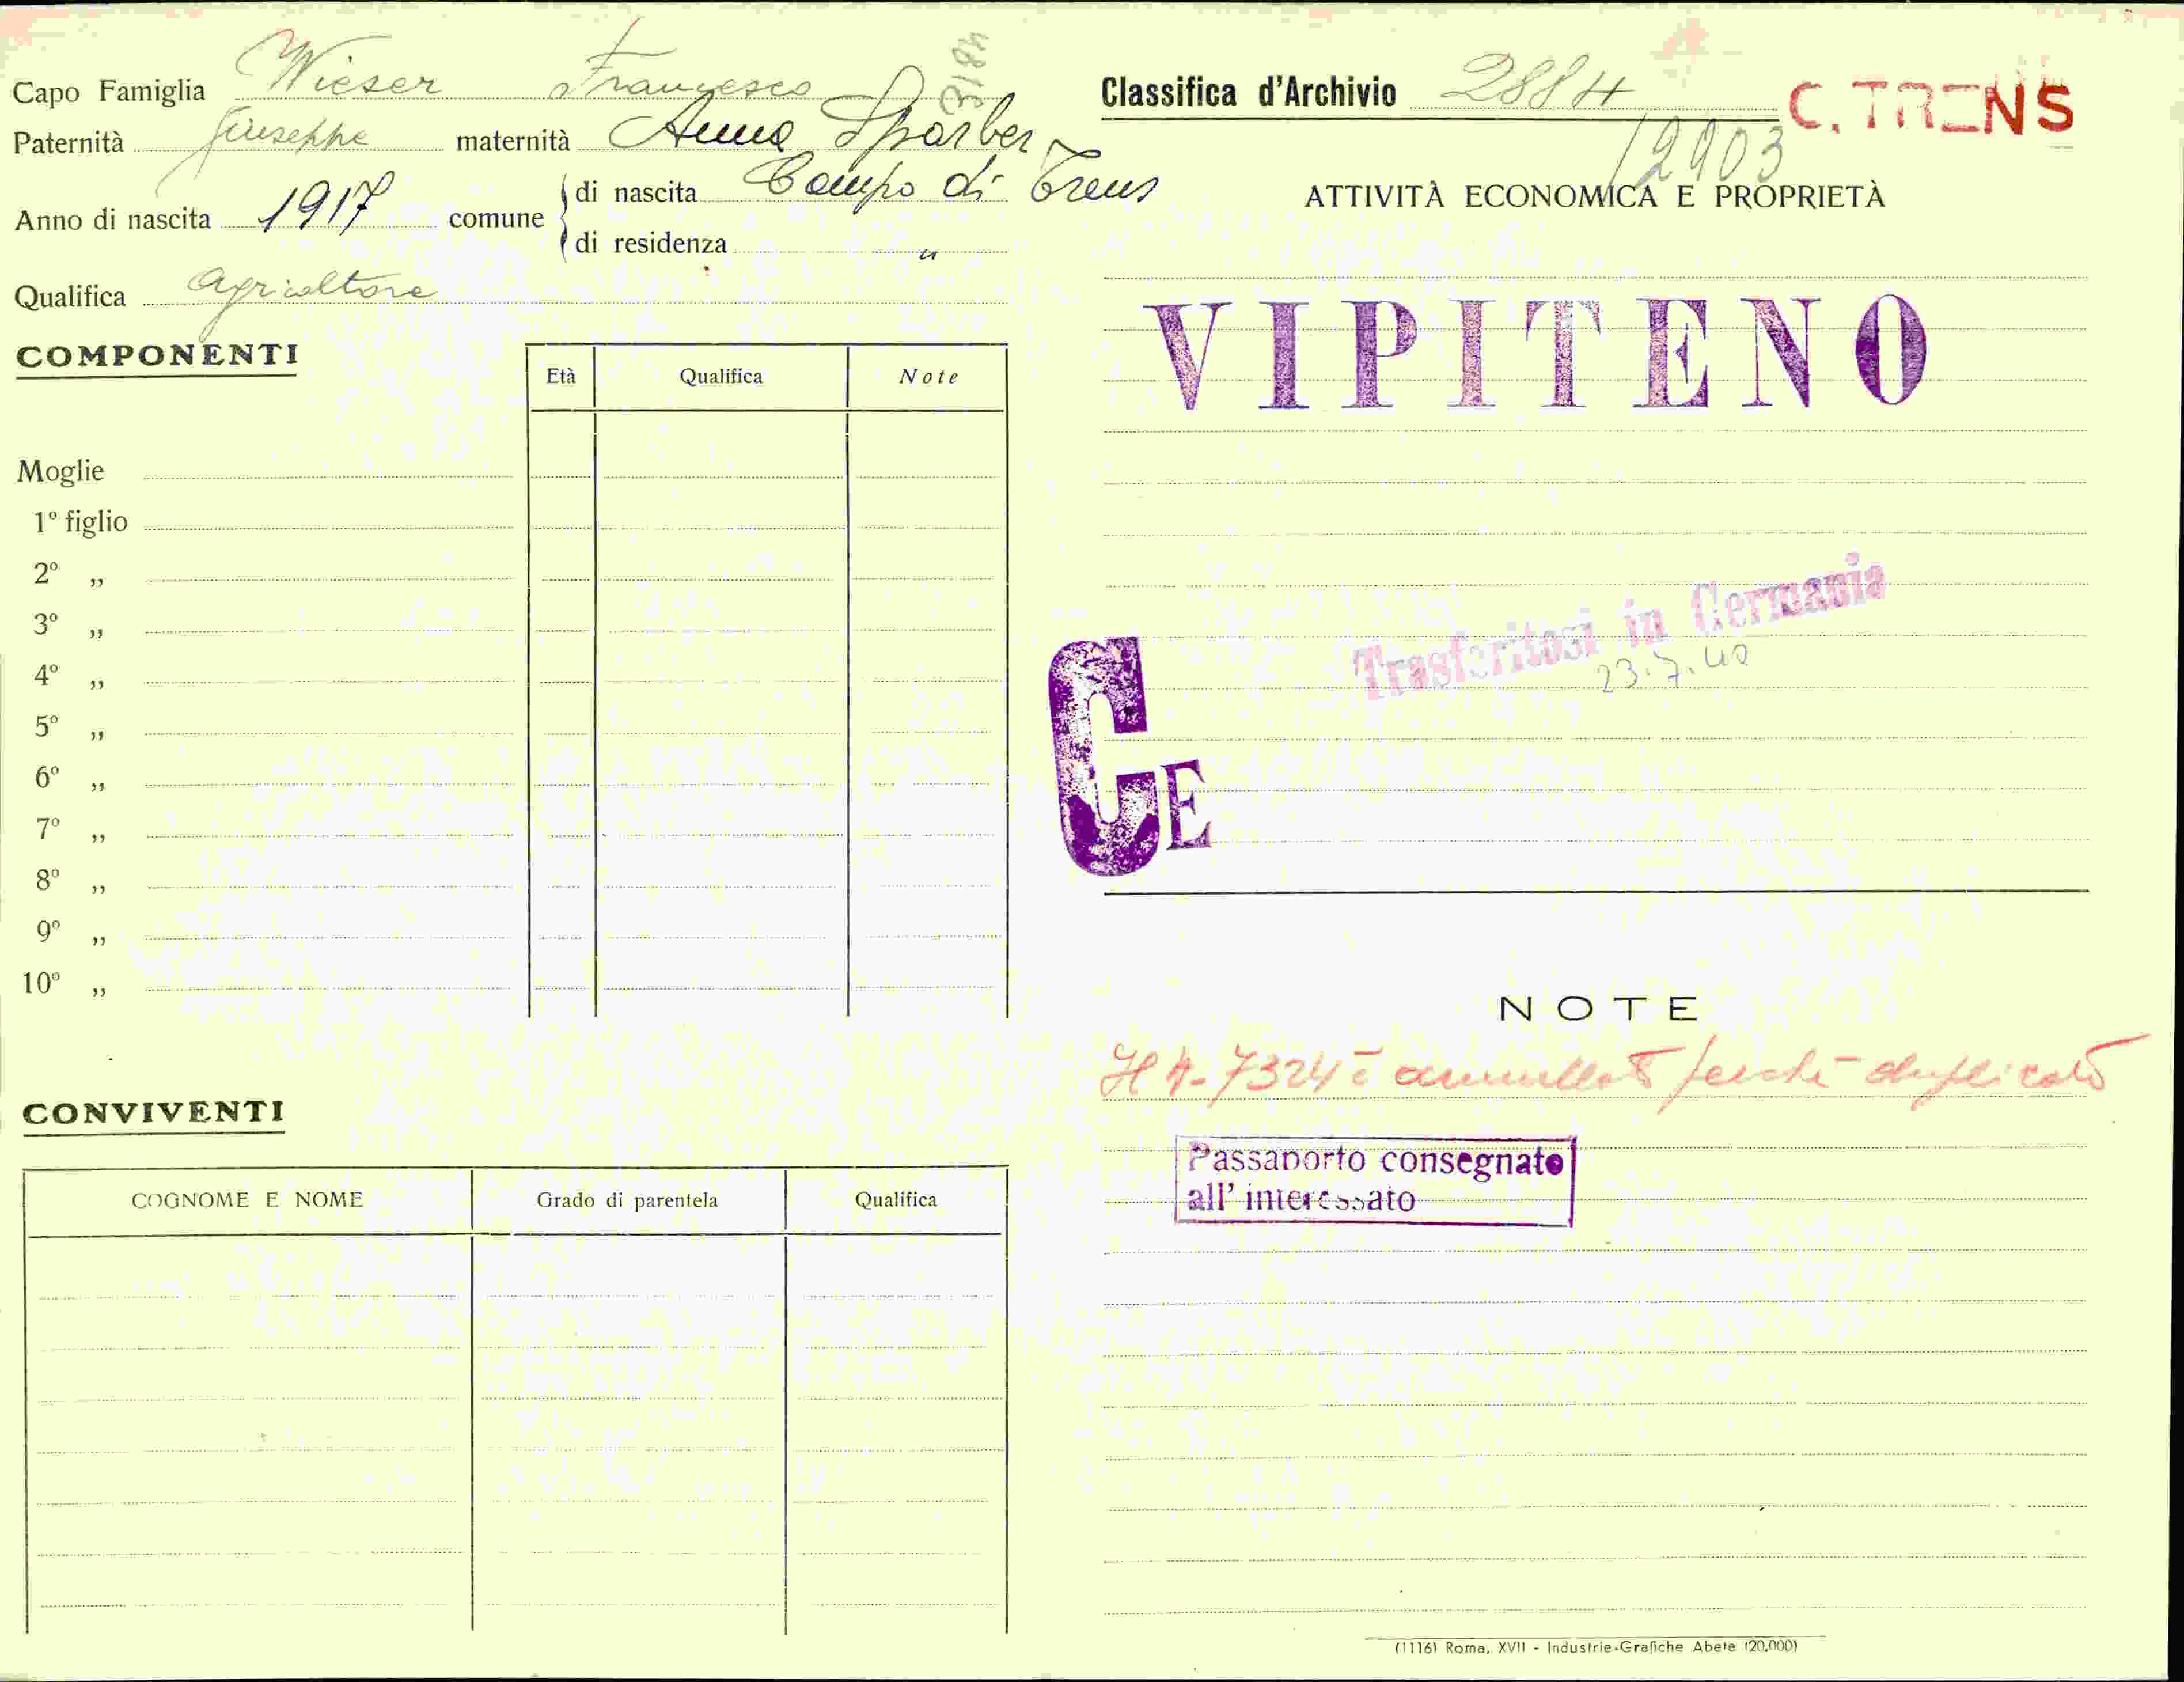 Capo Famiglia Wieser Francesco
3184
Paternità Giuseppe maternità Anna Sparber
Anno di nascita 1917 comune di nascita Campo di Trens
di residenza "
Qualifica agricoltore
COMPONENTI
Età Qualifica Note
Moglie
1º figlio
2º „
3º „
4º „
5º „
6º „
7º „
8º „
9º „
10º „
CONVIVENTI
COGNOME E NOME Grado di parentela Qualifica
Classifica d'Archivio 2884 C. TRENS
12903
ATTIVITÀ ECONOMICA E PROPRIETÀ
VIPITENO
Trasferitosi in Germania
23.7.40
CE
NOTE
7324 è annullato perchè duplicato
Passaporto consegnato
all' interessato
(1116) Roma, XVII - Industrie-Grafiche Abete (20.000)